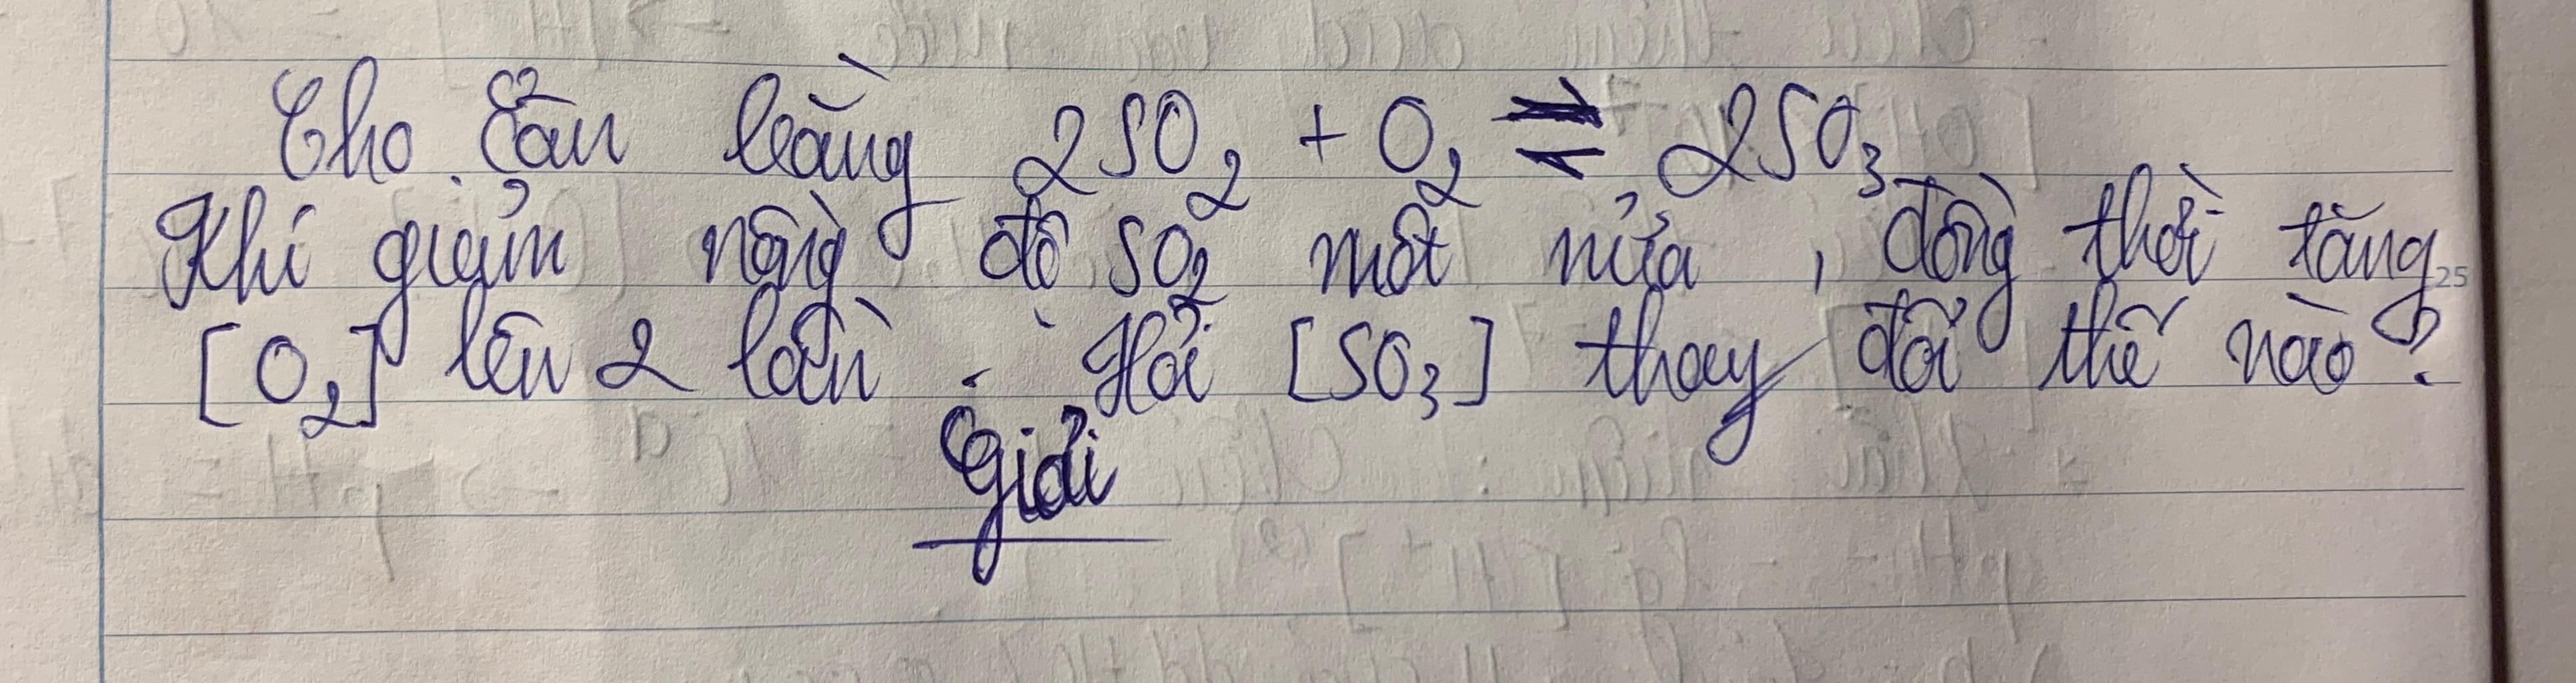 Cho cân bằng 2SO₂ + O₂ ⇌ 2SO₃
Khi giảm nồng độ SO₂ một nửa, đồng thời tăng
[O₂] lên 2 lần. Hỏi [SO₃] thay đổi thế nào?
Giải
25